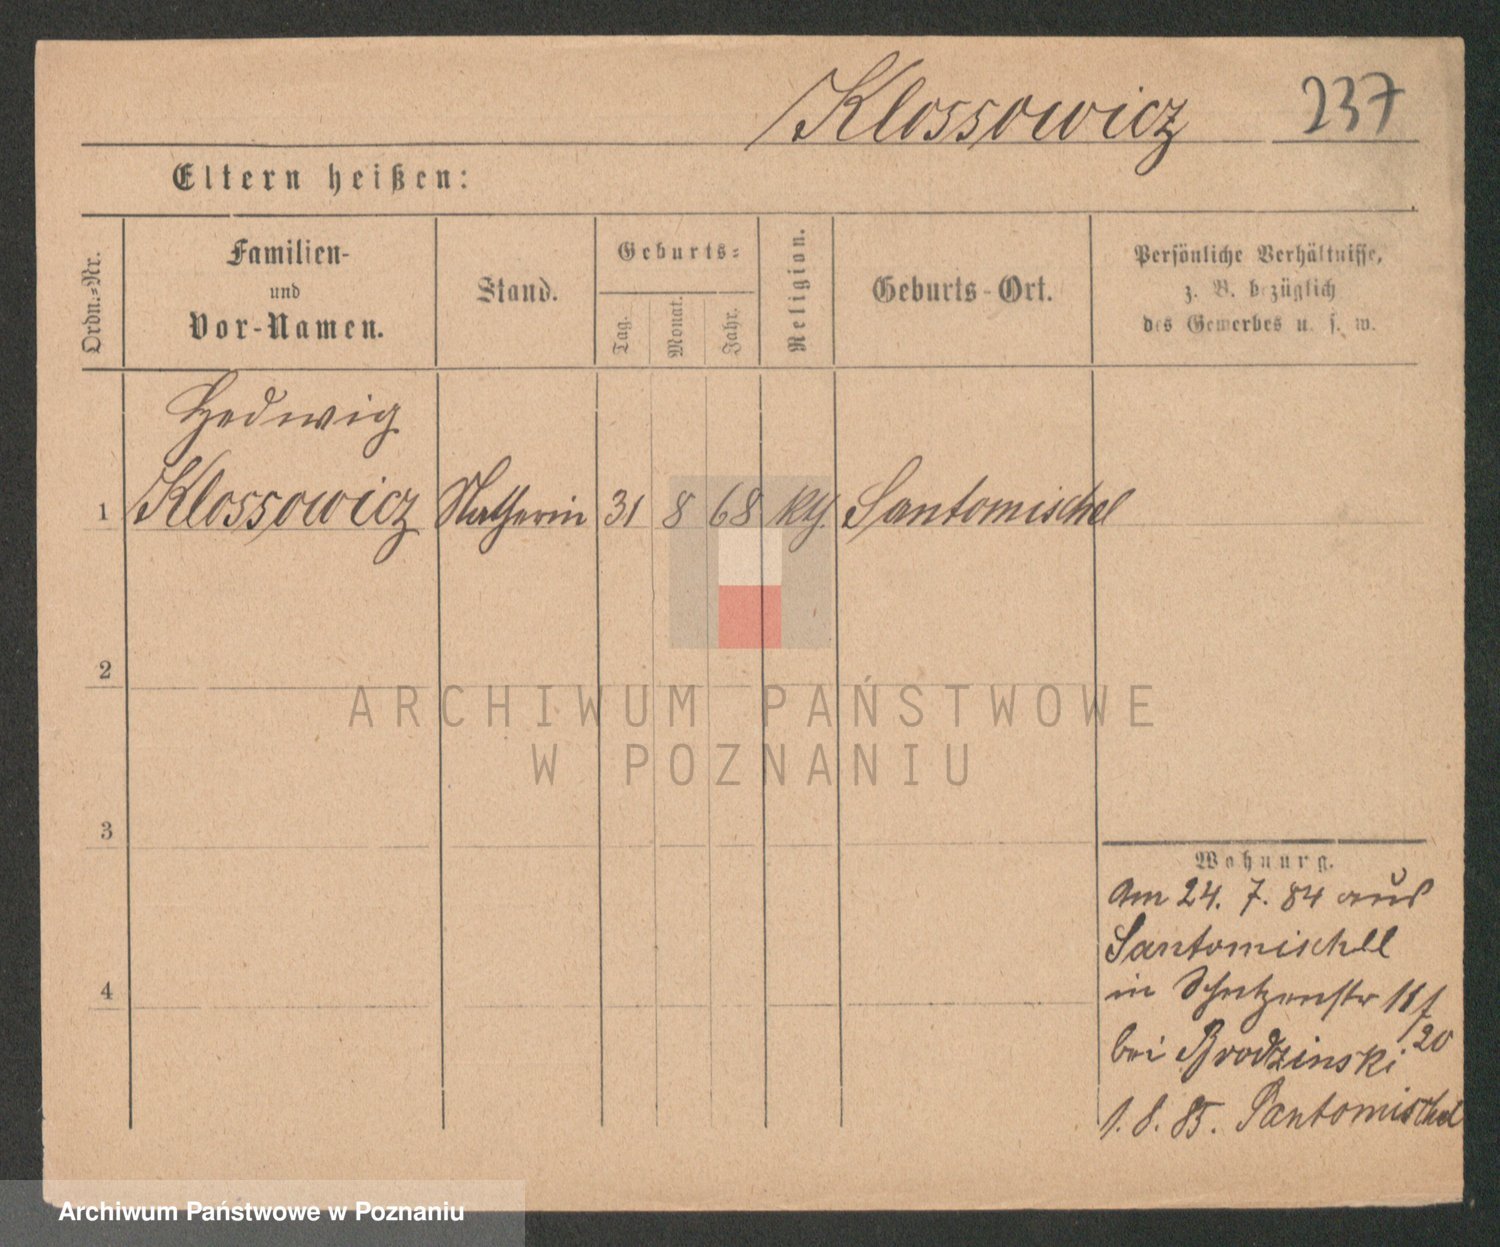 Klossowicz 237
Eltern heißen:
Ordn.-Nr.
Familien-
und
Vor-Namen.
Stand.
Geburts-
Tag.
Monat.
Jahr.
Religion.
Geburts-Ort.
Persönliche Verhältnisse,
z. B. bezüglich
des Gewerbes u. s. w.
Hedwig
1 Klossowicz 31 8 68 kth. Santomischel
2
ARCHIWUM PAŃSTWOWE
W POZNANIU
3
Wohnung.
Am 24. 7. 84 aus
Santomischel
4
in Schützenstr 18/
20
bei Brodzinski
1. 8. 85. Santomischel
Archiwum Państwowe w Poznaniu